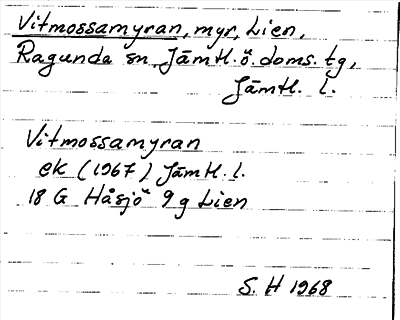 Vitmossamyran, myr, Lien,
Ragunda sn, Jämtl. ö. doms. tg,
Jämtl. l.
Vitmossamyran
ek (1967) Jämtl. l.
18 G Håsjö 9 g Lien
S. H 1968